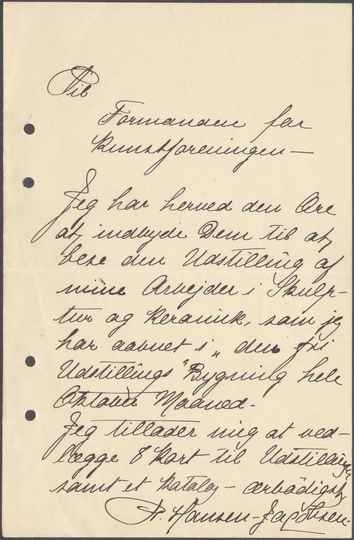 Til
Formanden for
Kunstforeningen—
Jeg har herved den Ære
at indbyde Dem til at
bese den Udstilling af
mine Arbejder i Skulp-
tur og Keramik, som jeg
har aabnet i „den fri
Udstillings" Bygning hele
Oktober Maaned.
Jeg tillader mig at ved-
lægge 8 Kort til Udstilling,
samt et Katalog — ærbødigst
N. Hansen-Jacobsen.